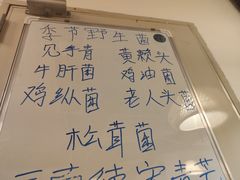 季节野生菌
见手青 黄赖头
牛肝菌 鸡油菌
鸡纵菌 老人头菌
松茸菌